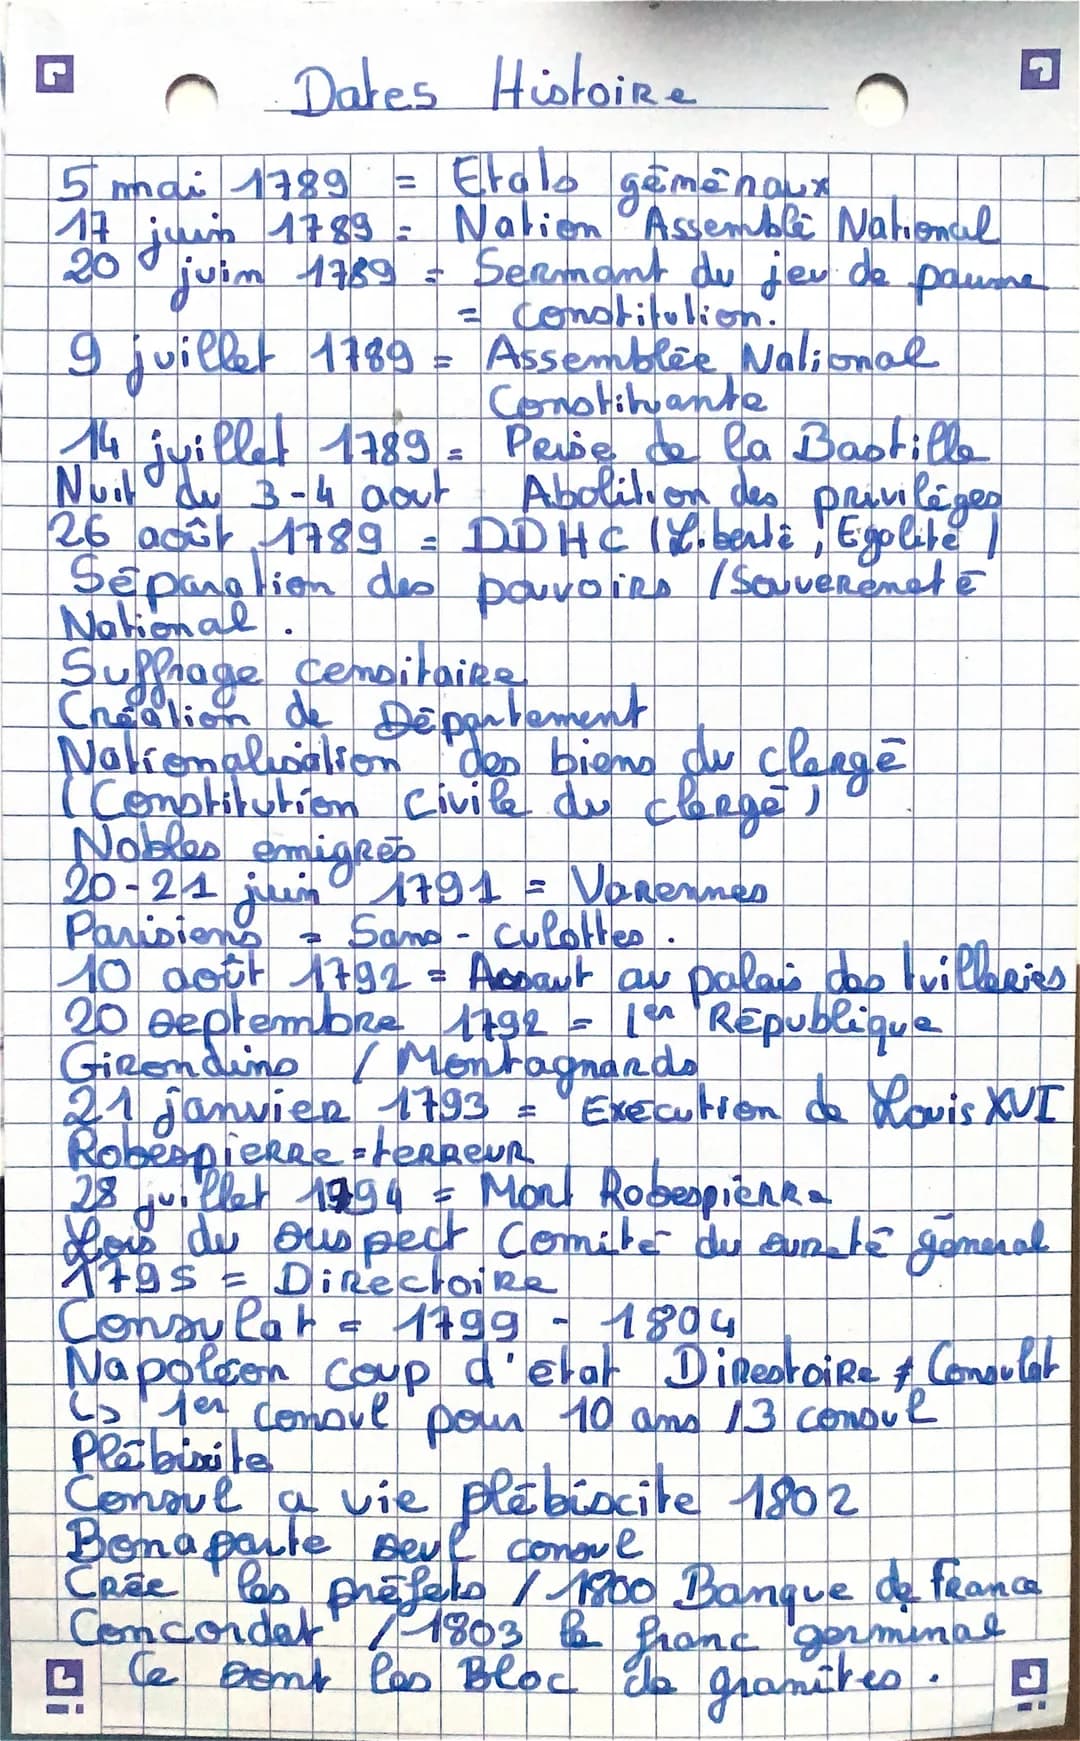 Dates Histoire
5 mai 1789 = Etats généraux
17 juin 1789 = Nation Assemblé National
20 juin 1789 = Sermant du jeu de paume
= Constitution.
9 juillet 1789 = Assemblée National
Constituante
14 juillet 1789 = Prise de la Bastille
Nuit du 3-4 aout Abolition des privilèges
26 août 1789 = DDHC (Liberté, Egalité /
Séparation des pouvoirs / Souvereneté
National.
Suffrage censitaire
Création de Département
Nationalisation des biens du clergé
(Constitution civile du clergé)
Nobles emigrés
20-21 juin 1791 = Varennes
Parisiens = Sans-culottes.
10 août 1792 = Assaut au palais des tuilleries
20 septembre 1792 = 1er République
Girondins / Montagnards
21 janvier 1793 = Exécution de Louis XVI
Robespierre = terreur
28 juillet 1794 = Mort Robespierre
Lois du suspect Comité du sureté général
1795 = Directoire
Consulat = 1799 - 1804
Napoléon coup d'état Direstoire ≠ Consulat
↳ 1er consul pour 10 ans / 3 consul
Plébisite
Consul a vie plébiscite 1802
Bonaparte seul consul
Crée les préfets / 1800 Banque de France
Concordat / 1803 le franc germinal
Ce sont les Bloc de granites.